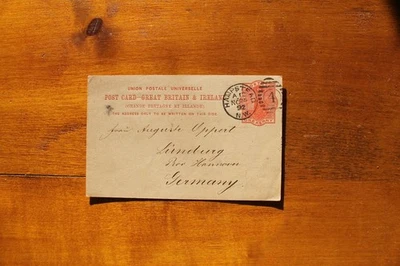 UNION POSTALE UNIVERSELLE
POST CARD-GREAT BRITAIN & IRELAND
(GRANDE BRETAGNE ET IRLANDE)
THE ADDRESS ONLY TO BE WRITTEN ON THIS SIDE
HAMPSTEAD
92
N.W.
1
Auguste Oppert
Lüneburg
Prov Hannover
Germany